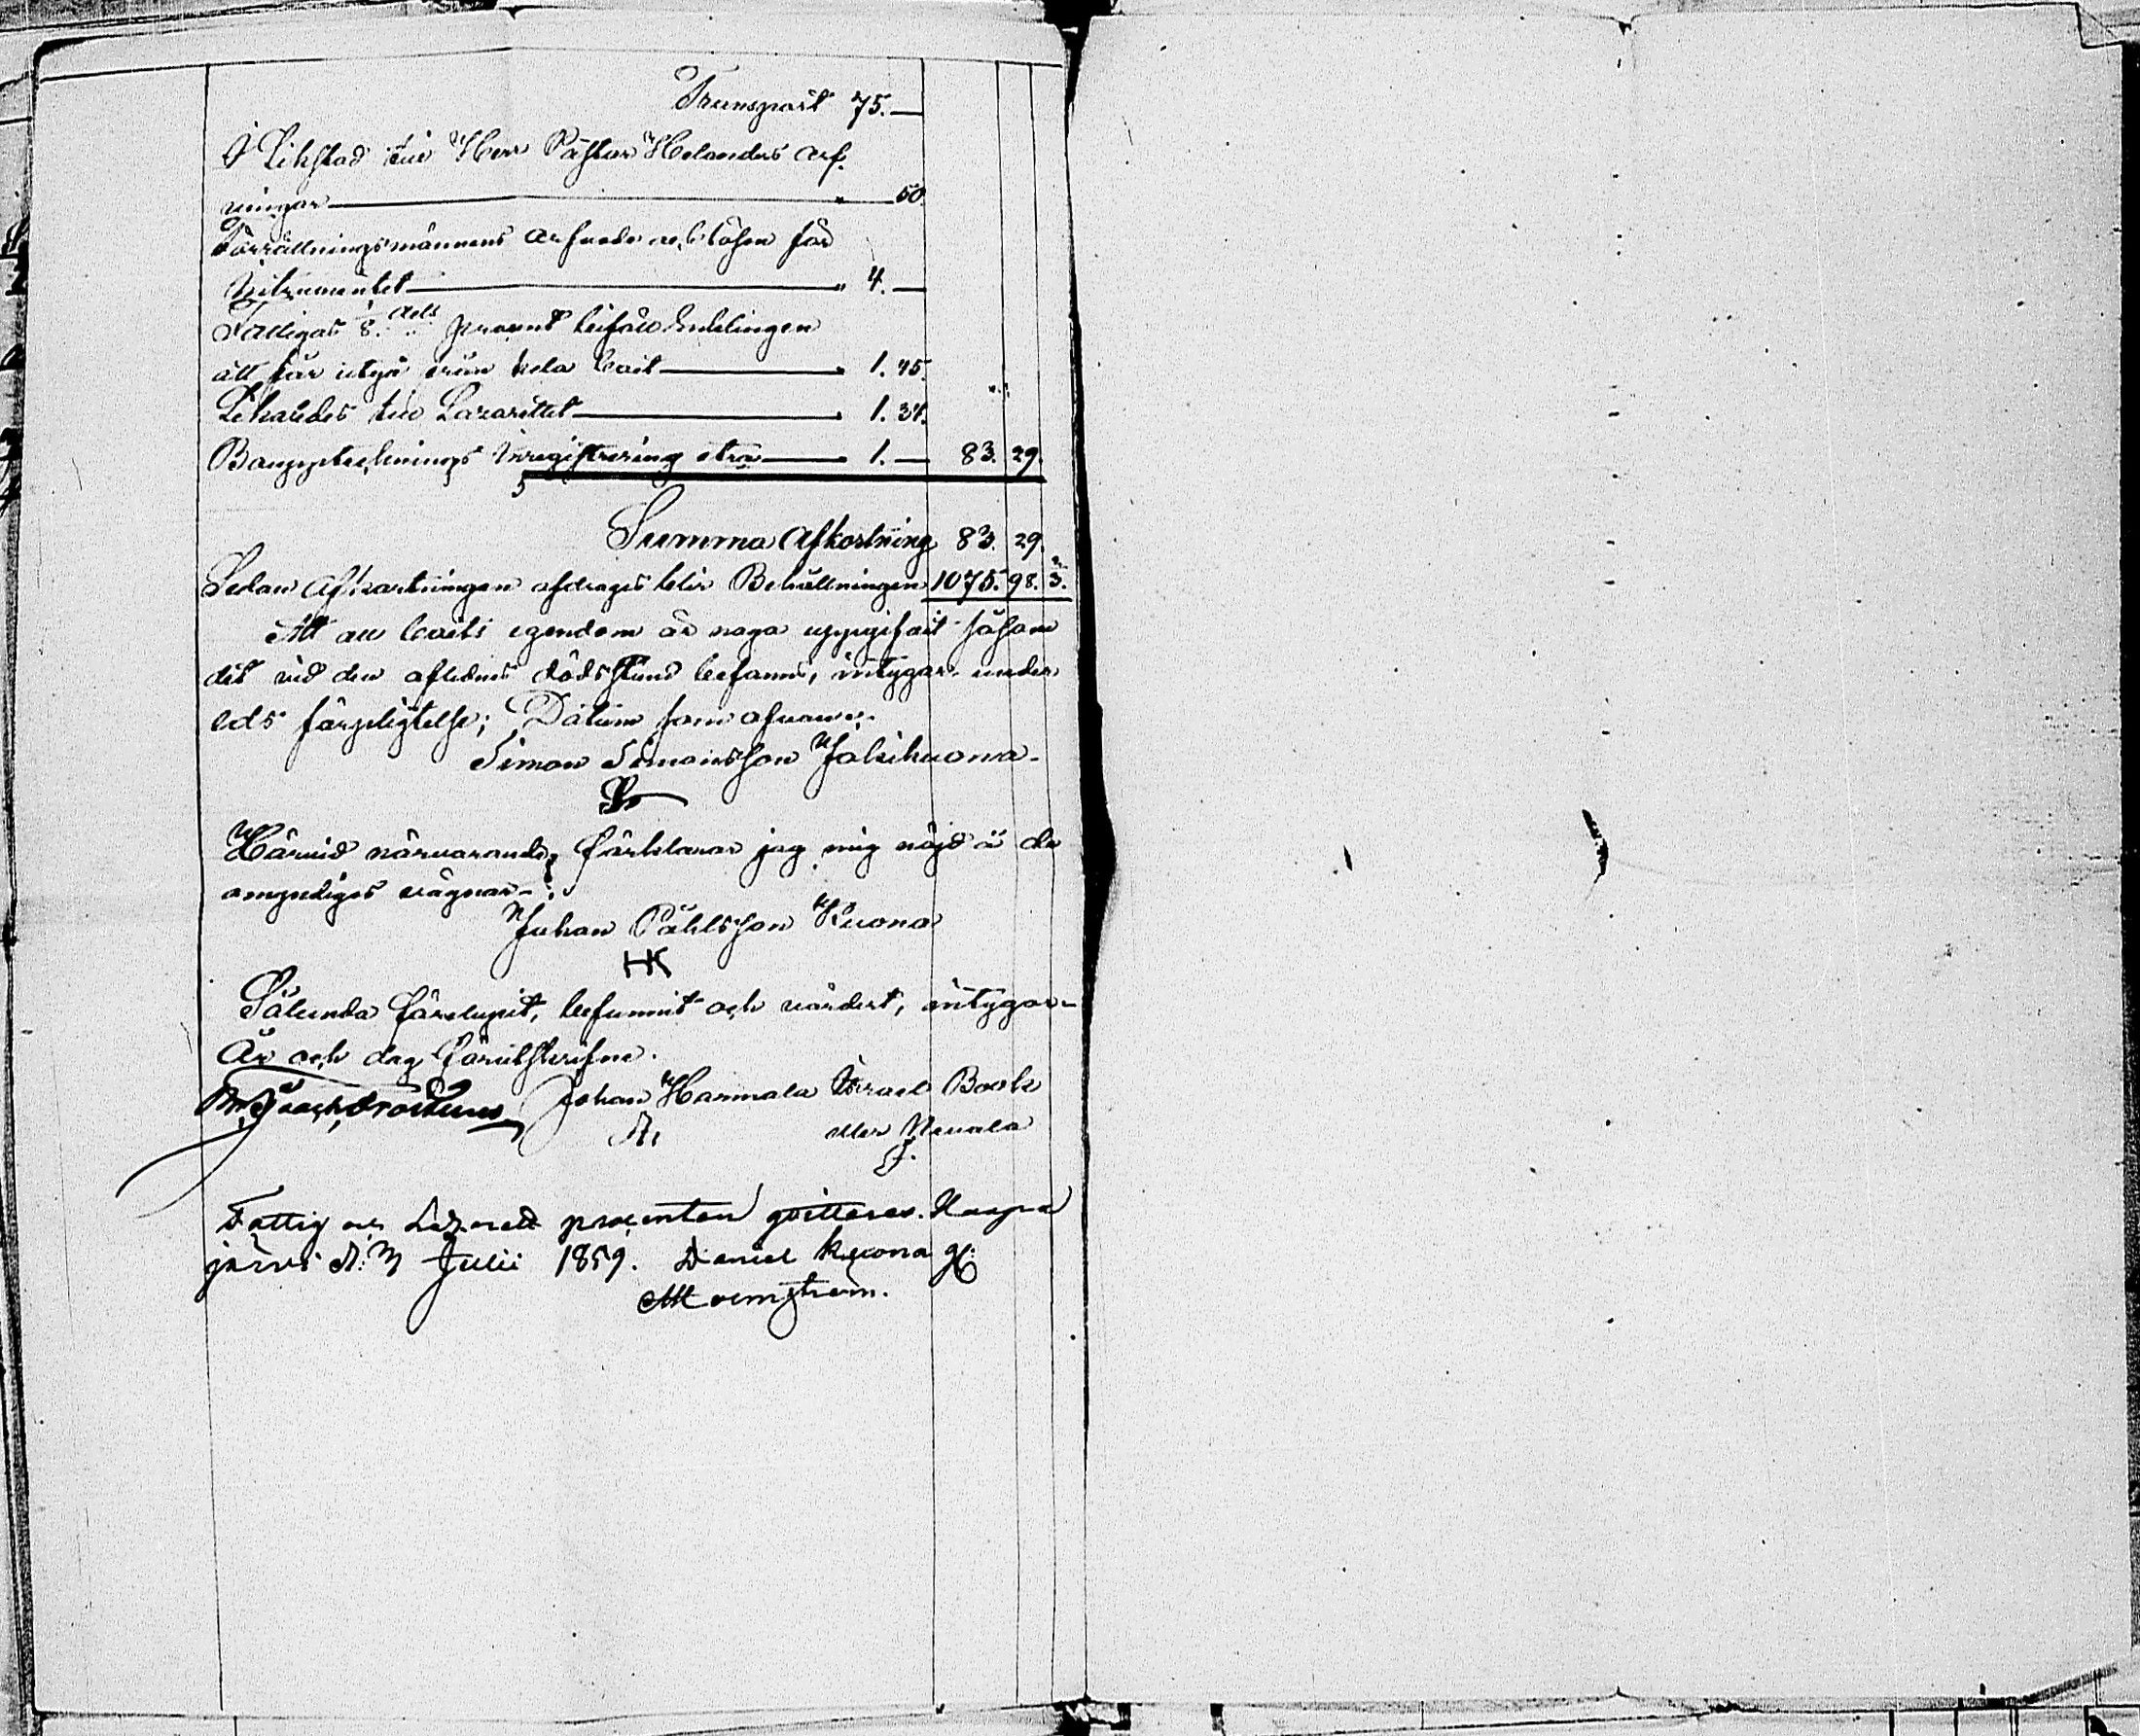 Transport 75.—
I Likstad till Herr Pastor Helanders arf-
vingar — " — 50.
Förrättningsmännens arfvode och lösen för
— " 4.—
Fattigas 8. dels procent
att här utgå från hela boet — " 1. 45.
till Lazarettet — " 1. 34.
Bouppteckningens inregistrering etra — " 1.— 83. 29.
Summa Afkortning 83. 29.
Sedan Afkortningen afdrages blir Behållningen 1075. 98. 3.
Att all boets egendom är noga uppgifvit såsom
det vid den aflednes dödsstund befanns, intygar under
eds förpligtelse; Datum som ofvan.
Simon Simonsson Jälkikuona.
Härvid närvarande, förklarar jag mig nöjd å de
omyndiges vägnar.
Juhan Påhlsson Kuona
HK
Sålunda förelupit, befunnit och värdert, intygar.
År och dag förutskrifne.
Johan Harmala Israel Book
eller Nevala
Fattig och Lazarett procenten qvitteras. Haapa
järvi d. Julii 1859. Daniel Kuona